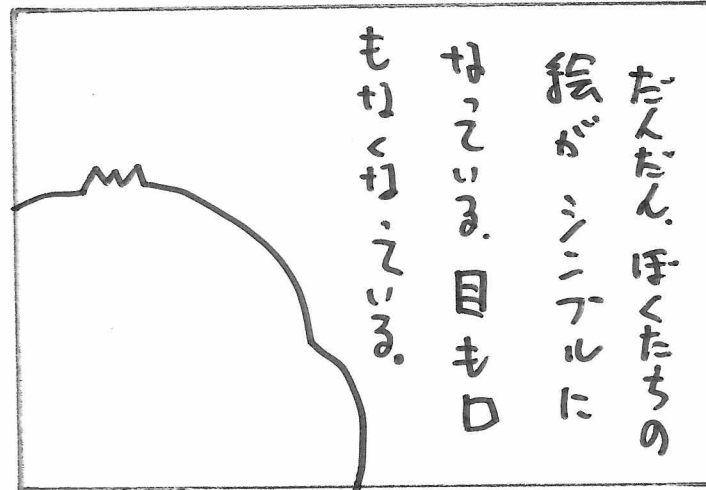 だんだん、ぼくたちの
絵が シンプルに
なっている。目も口
もなくなっている。